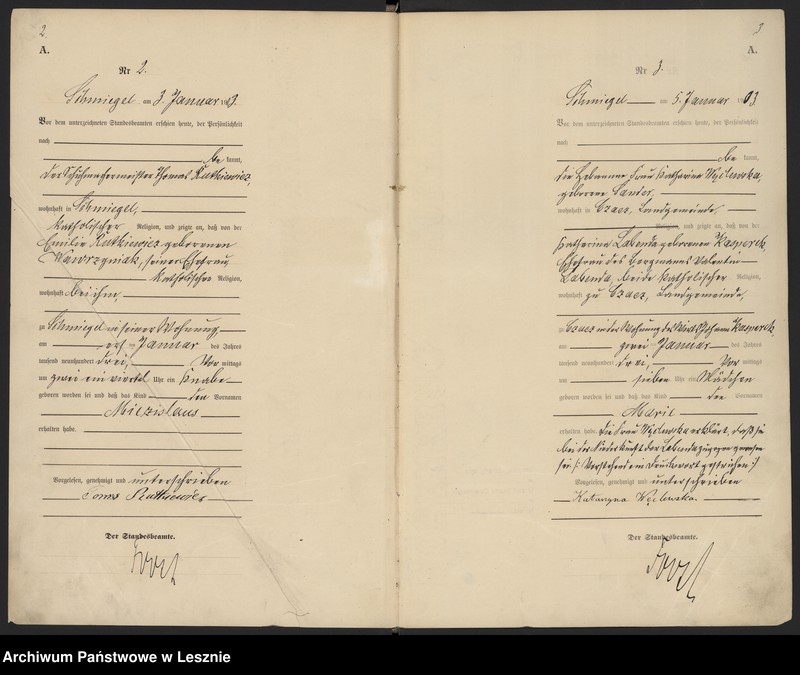 2.
A.
Nr 2.
Schmiegel am 3. Januar 1903.
Vor dem unterzeichneten Standesbeamten erschien heute, der Persönlichkeit
nach
be kannt,
der Schuhmachermeister Thomas Rutkiewicz,
wohnhaft in Schmiegel,
katholischer Religion, und zeigte an, daß von der
Emilie Rutkiewicz geborenen
Wawrzyniak, seiner Ehefrau,
katholischer Religion,
wohnhaft bei ihm,
zu Schmiegel in seiner Wohnung
am Januar des Jahres
tausend neunhundert drei, Vor mittags
um zwei ein viertel Uhr ein Knabe
geboren worden sei und daß das Kind den Vornamen
Miezislaus
erhalten habe.
Vorgelesen, genehmigt und unterschrieben
Toms Rutkiewicz
Der Standesbeamte.
3
A.
Nr 3.
Schmiegel am 5. Januar 1903
Vor dem unterzeichneten Standesbeamten erschien heute, der Persönlichkeit
nach
be kannt,
die Hebamme Frau Katharina Węclewska,
geborene Sander,
wohnhaft in Czacz, Landgemeinde,
Religion, und zeigte an, daß von der
Katharina Labenda geborenen Kasperek,
Ehefrau des Bergmanns Valentin
Labenda, beide katholischer Religion,
wohnhaft zu Czacz, Landgemeinde,
zu Czacz in der Wohnung des Kasperek,
am zwei Januar des Jahres
tausend neunhundert drei, Vor mittags
um sieben Uhr ein Mädchen
geboren worden sei und daß das Kind den Vornamen
Marie
erhalten habe. Die Frau Węclewska erklärt, daß sie
bei der Niederkunft der Labenda zugegen gewesen
sei /: Vorstehend ein Druckwort gestrichen :/
Vorgelesen, genehmigt und unterschrieben
Katarzyna Węclewska.
Der Standesbeamte.
Archiwum Państwowe w Lesznie